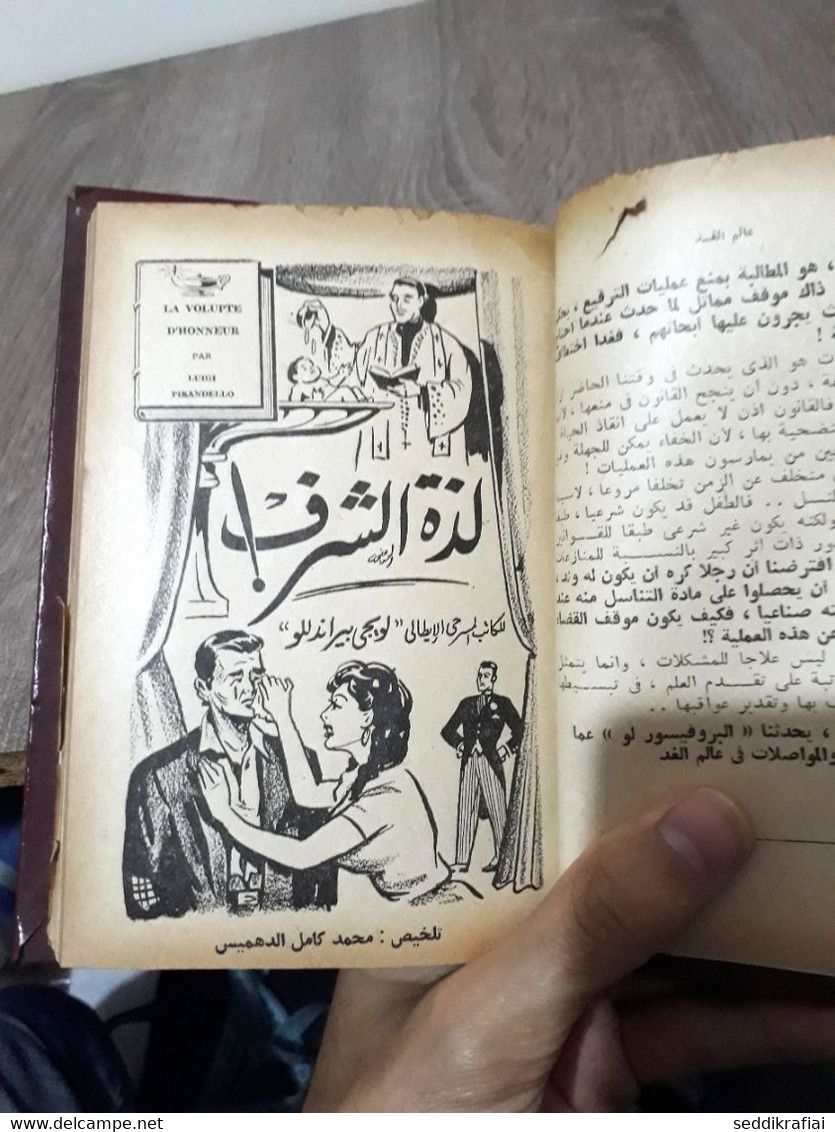 LA VOLUPTE
D'HONNEUR
PAR
LUIGI
PIRANDELLO
لذة الشرف !
للكاتب المسرحى الإيطالى "لويجى بيراندللو"
تلخيص : محمد كامل الدهميس
عالم الغد
، هو المطالبة بمنع عمليات الترقيع ،
ذاك موقف مماثل لما حدث عندما
ت يجرون عليها ابحاثهم ، فقدا
ه !
ت هو الذى يحدث فى وقتنا الحاضر
ة ، دون أن ينجح القانون فى منعها ،
فالقانون اذن لا يعمل على انقاذ
تضحية بها ، لأن الخفاء يمكن للجهلة
ين من يمارسون هذه العمليات !
متخلف عن الزمن تخلفا مروعا ،
سل .. فالطفل قد يكون شرعيا ،
لكنه يكون غير شرعى طبقا
ور ذات اثر كبير بالنسبة
افترضنا أن رجلا كره ان يكون له
أن يحصلوا على مادة التناسل منه
نه صناعيا ، فكيف يكون موقف
ن هذه العملية ؟!
ليس علاجا للمشكلات ، وانما
تية على تقدم العلم ، فى
ب بها وتقدير عواقبها ..
، يحدثنا « البروفيسور لو » عما
والمواصلات فى عالم الغد
DELCAMPE.NET
seddikrafiai